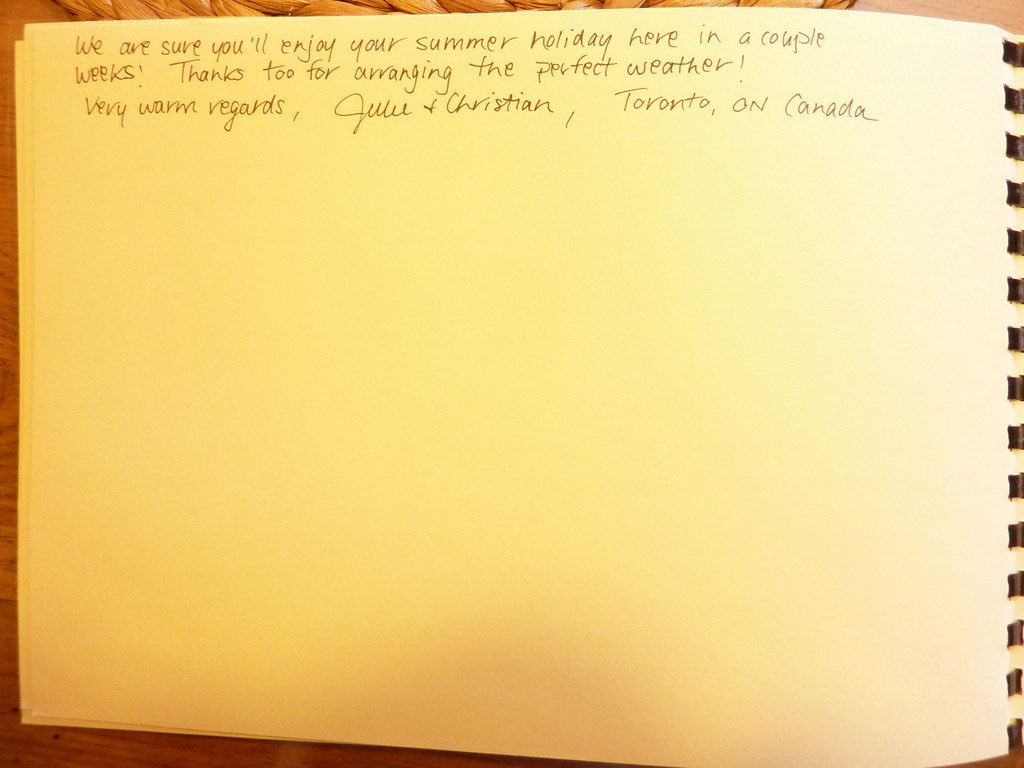 We are sure you'll enjoy your summer holiday here in a couple
weeks! Thanks too for arranging the perfect weather!
Very warm regards, Julie + Christian, Toronto, ON Canada